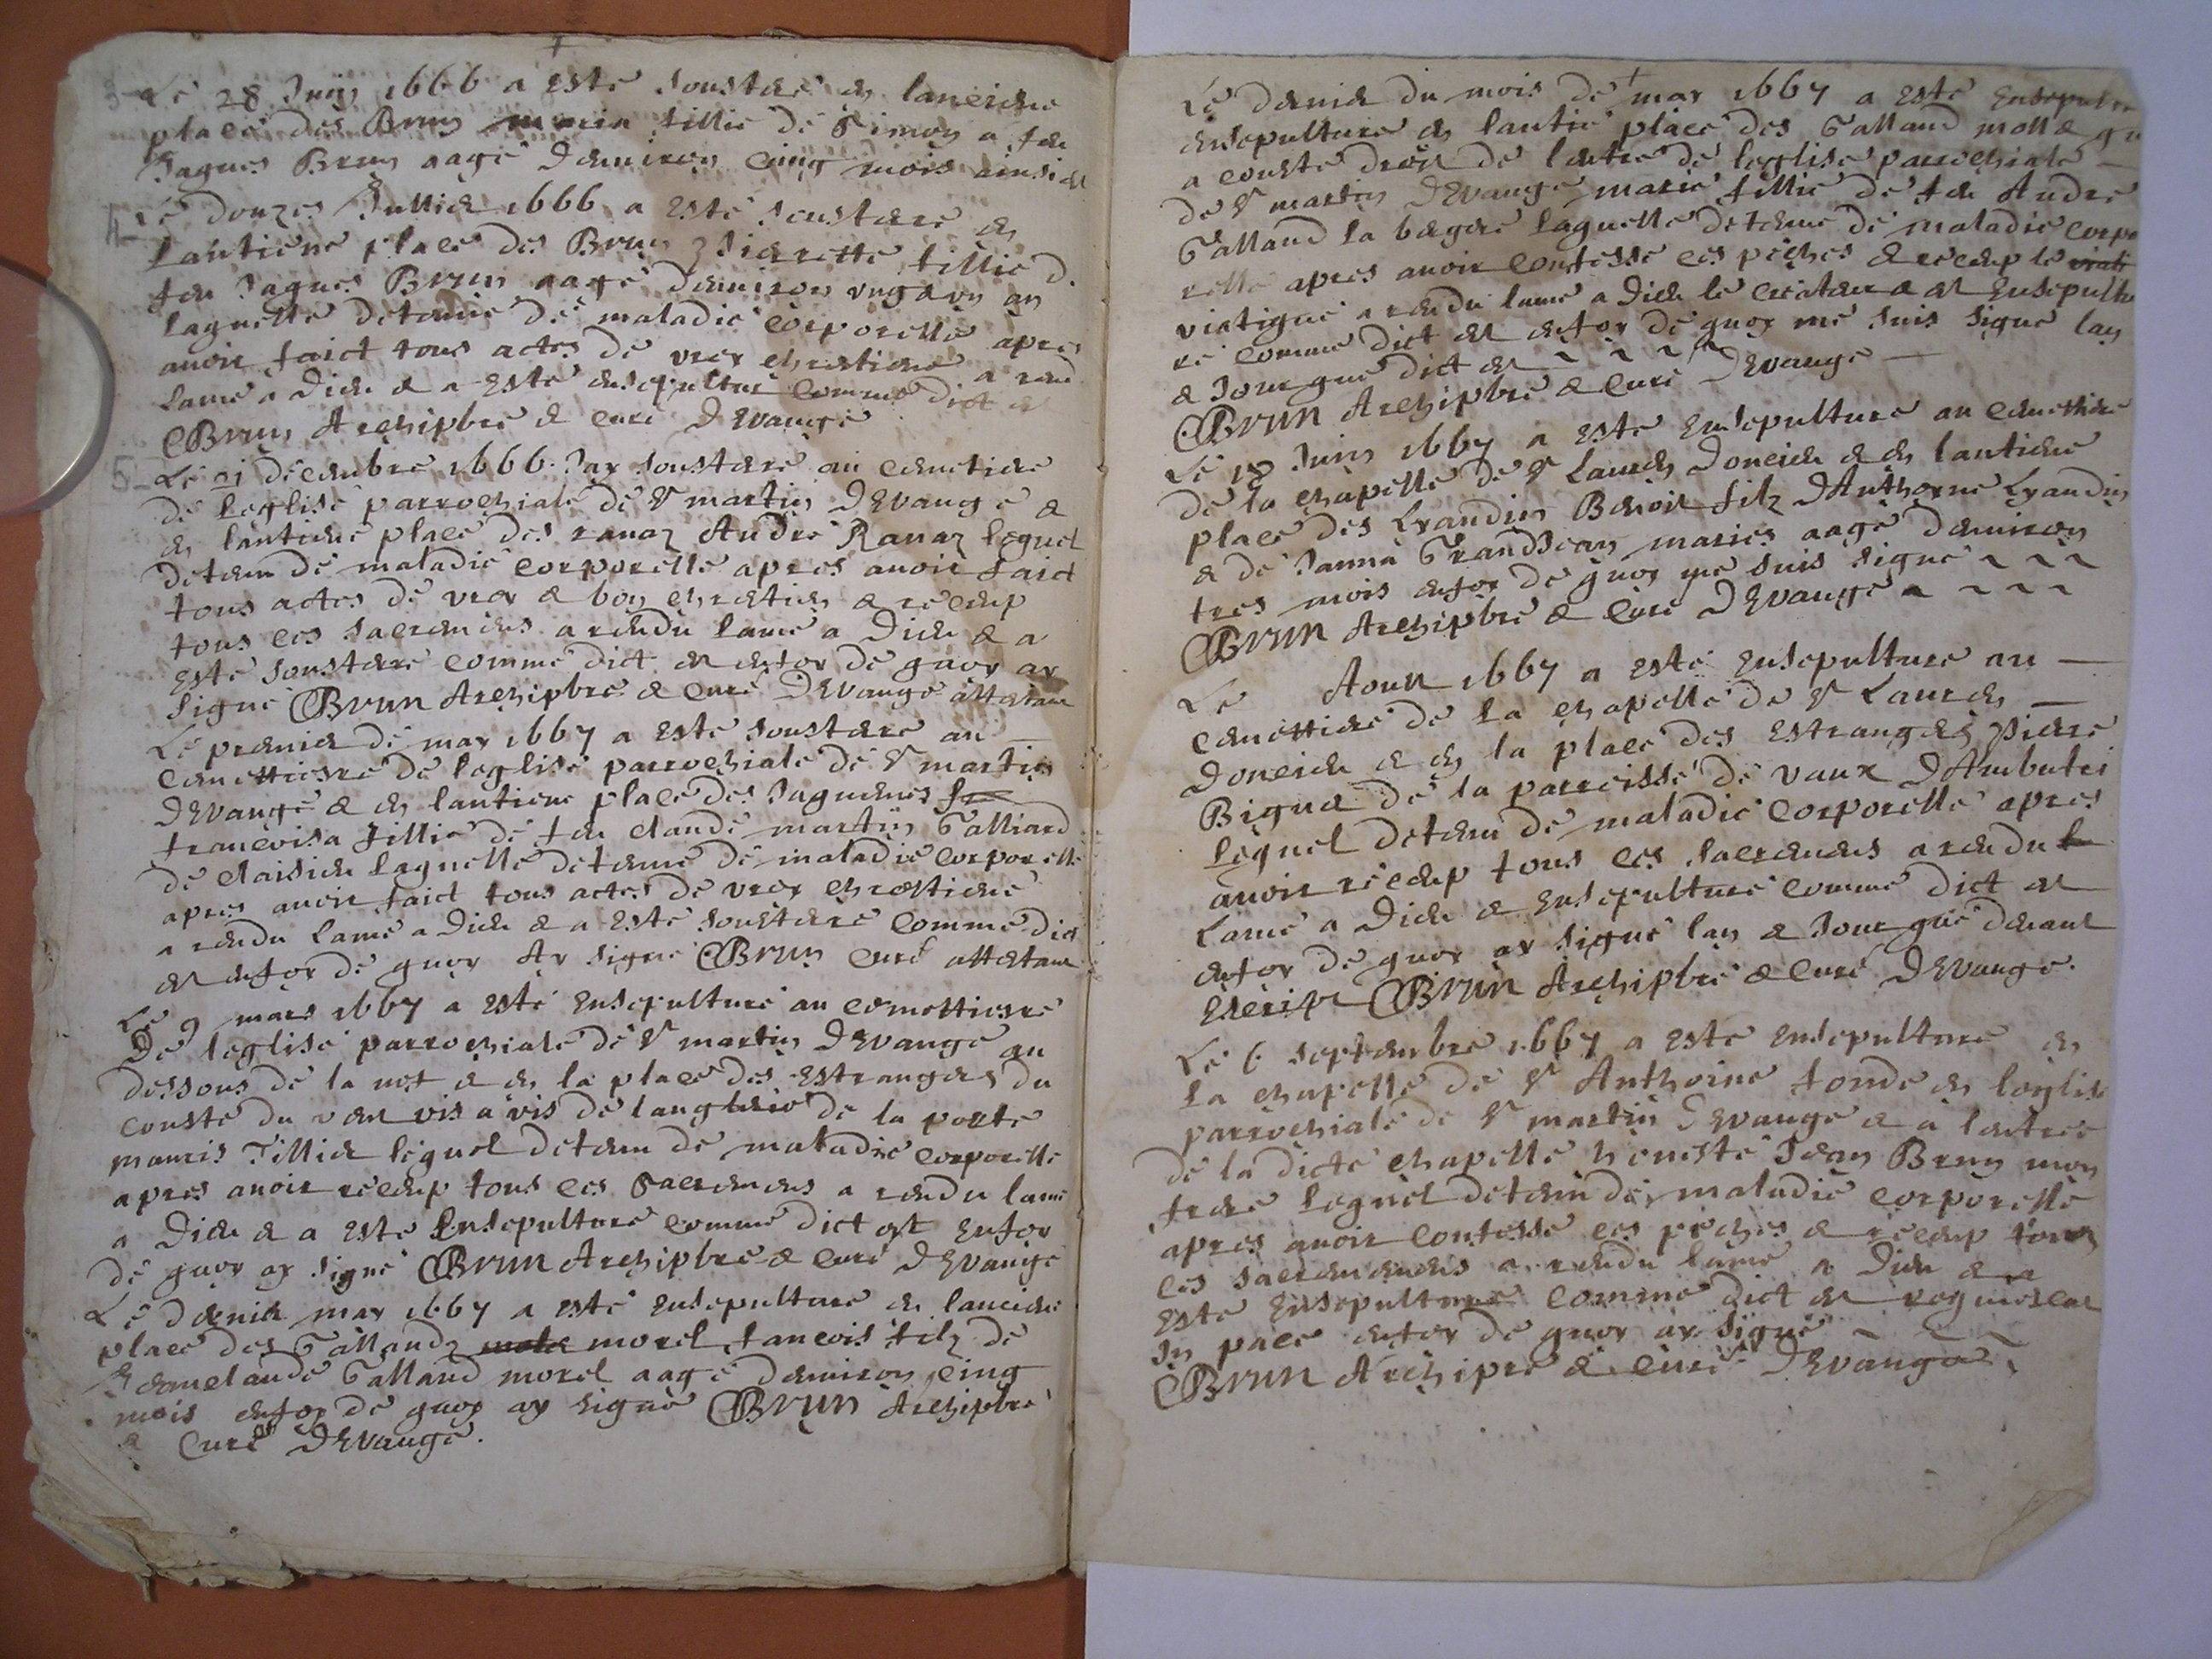 3 Le 28 Juin 1666 a esté sousteré en lanciene
place des Brun maria fillie de Simon a feu
Jaques Brun aagé denviron cinq mois ainsi est
4 Le douzes Jullier 1666 a esté sousterré en
lantiene place des Brun Pierrette fillie d
feu Jaques Brun aagé denviron ung an
laquelle detenue de maladie corporelle apres
avoir faict tous actes de vray chretiene a rend
lame a Dieu & a esté ensepulturé comme dict est
Brun Archiptre & curé dEvange
5 Le 21 decembre 1666 Jay sousteré au cemetiere
de leglise parrochiale de St martin dEvange &
en lantiene place des ravaz André Ravaz lequel
detenu de maladie corporelle apres avoir faict
tous actes de vray & bon chretien & receup
tous ces sacremens a rendu lame a Dieu & a
esté sousteré comme dict est en foy de quoy ay
signé Brun Archiptre & curé dEvange attestant
Le premier de may 1667 a esté sousteré au
cemettiere de leglise parrochiale de St martin
dEvange & en lantiene place des Jaquemes
francoisa fillie de feu claude martin Galliard
de claisieu laquelle detenue de maladie corporelle
apres avoir faict tous actes de vray chrestiene
a rendu lame a Dieu & a esté sousteré comme dict
est en foy de quoy Ay signé Brun curé attestant
Le 9 mars 1667 a esté ensepulturé au cemettiere
De leglise parrochiale de St martin dEvange au
dessous de la not & en la place des estrangers du
cousté du vent vis a vis de langlerie de la porte
mauris Tillier lequel detenu de maladie corporelle
apres avoir receup tous ces Sacremens a rendu lame
a Dieu & a esté Ensepulturé comme dict est en foy
de quoy ay signé Brun Archiptre & curé dEvange
Le dernier may 1667 a esté ensepulturé en lanciene
place des Gallandz morel fancois filz de
claude Galland morel aagé denviron cinq
mois en foy de quoy ay signé Brun Archiptre
& curé dEvange.
Le dernier du mois de may 1667 a esté ensepultu
ensepulture en lantie place des Galland
a cousté droit de lentre de leglise parrochiale
de St martin dEvange marie fillie de feu Andre
Galland la bergere laquelle detenue de maladie corpo
relle apres avoir confessé ces peches & receup le
viatique a rendu lame a Dieu le createur & est ensepultu
ré comme dict est en foy de quoy me suis signé lan
& Jour que dict est
Brun Archiptre & curé dEvange
Le 18 Juin 1667 a esté ensepulturé au cemettiere
de la chapelle de St Laurens doncieu & en lantiene
place des Grandin Benoit filz dAnthoyne Grandin
& de Janna Grandjean maries aagé denviron
tres mois en foy de quoy me suis signé
Brun Archiptre & curé dEvange
Le Aoust 1667 a esté ensepulturé au
cemettiere de la chapelle de St Laurens
doncieu & en la place des estrangers pierre
Biguer de la parroisse de vaux dAmbutri
lequel detenu de maladie corporelle apres
avoir receup tous ces sacremens a rendu
lame a Dieu & ensepulturé comme dict est
en foy de quoy ay signé lan & Jour que devant
escript Brun Archiptre & curé dEvange.
Le 6 septembre 1667 a esté ensepulturé en
la chapelle de St Anthoine fonde en leglise
parrochiale de St martin dEvange & a lentree
de la dicte chapelle honeste Jean Brun mon
frere lequel detenu de maladie corporelle
apres avoir confesse ces peches & receup tous
ces sacremens a rendu lame a Dieu & a
esté ensepulturé comme dict est requiescat
In pace en foy de quoy ay signé
Brun Archipre & curé dEvange